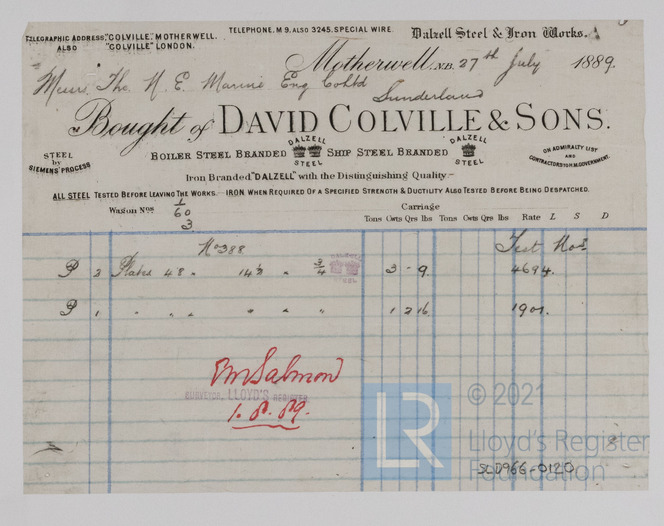 TELEGRAPHIC ADDRESS, "COLVILLE", MOTHERWELL.
ALSO "COLVILLE" LONDON.
TELEPHONE, M 9, ALSO 3245, SPECIAL WIRE.
Dalzell Steel & Iron Works.
Motherwell, N.B. 27th July 1889.
The N. E. Marine Eng Co Ltd
Sunderland
Bought of DAVID COLVILLE & SONS.
STEEL by SIEMENS' PROCESS
BOILER STEEL BRANDED DALZELL STEEL SHIP STEEL BRANDED DALZELL STEEL
ON ADMIRALTY LIST AND CONTRACTORS FOR H.M. GOVERNMENT.
Iron Branded "DALZELL" with the Distinguishing Quality:-
ALL STEEL TESTED BEFORE LEAVING THE WORKS.— IRON, WHEN REQUIRED OF A SPECIFIED STRENGTH & DUCTILITY ALSO TESTED BEFORE BEING DESPATCHED.
Wagon Nos 1
60
3
Carriage
Tons Cwts Qrs lbs Tons Cwts Qrs lbs Rate L S D
No 388 Test Nos
P 2 Plates 48 " 14½ " ¾ DALZELL STEEL 3 - 9. 4694.
P 1 " " " " " " 1 2 16. 1901.
EM Salmon
SURVEYOR, LLOYD'S REGISTER
1. 8. 89.
LR
© 2021
Lloyd's Register
Foundation
SLD966-0120